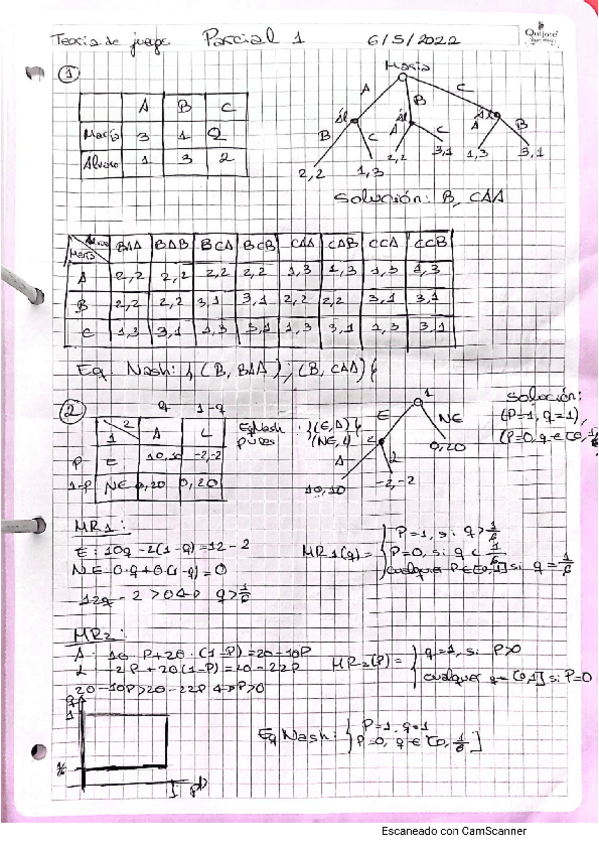 Teoría de juegos Parcial 1 6/5/2022
Quijote
①
María
A B C
A B C
María 3 1 2
Álvaro 1 3 2
Ál Ál Ál
B C A C A B
2,2 1,3 2,2 3,1 1,3 3,1
Solución: B, CAA
Álvaro
María
BAA BAB BCA BCB CAA CAB CCA CCB
A 2,2 2,2 2,2 2,2 1,3 1,3 1,3 1,3
B 2,2 2,2 3,1 3,1 2,2 2,2 3,1 3,1
C 1,3 3,1 1,3 3,1 1,3 3,1 1,3 3,1
Eq. Nash: { (B, BAA) ; (B, CAA) }
②
q 1-q
1 2 A L
P E 10,10 -2,-2
1-P NE 0,20 0,20
Eq Nash puros : {(E,A) (NE,L)}
1
E NE
2 0,20
A L
10,10 -2,-2
Solución:
(P=1, q=1),
(P=0, q ∈ [0, 1/6
MR1:
E: 10q -2(1-q) = 12 - 2
NE = 0·q + 0·(1-q) = 0
12q - 2 > 0 ↔ q > 1/6
MR1(q) = { P=1, si q > 1/6
P=0, si q < 1/6
cualquier P∈[0,1] si q = 1/6
MR2:
A: 10 P + 20·(1-P) = 20-10P
L: -2P + 20(1-P) = 20-22P
20-10P > 20-22P ↔ P>0
MR2(P) = { q=1, si P>0
cualquier q ∈ [0,1] si P=0
q
1
1/6
1 P
Eq Nash: { P=1, q=1
P=0, q ∈ [0, 1/6]
Escaneado con CamScanner